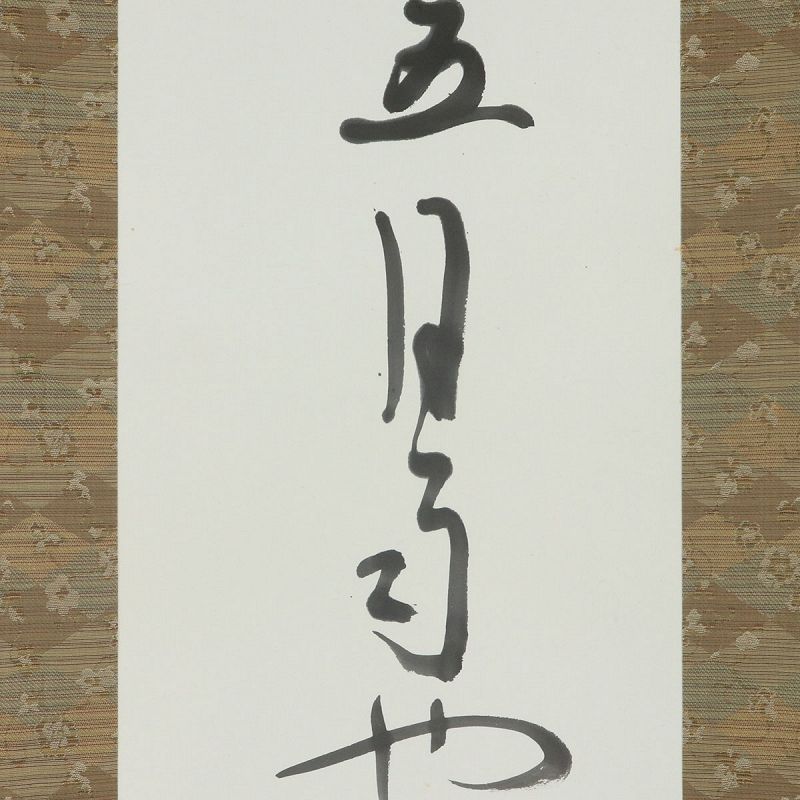 五月雨や